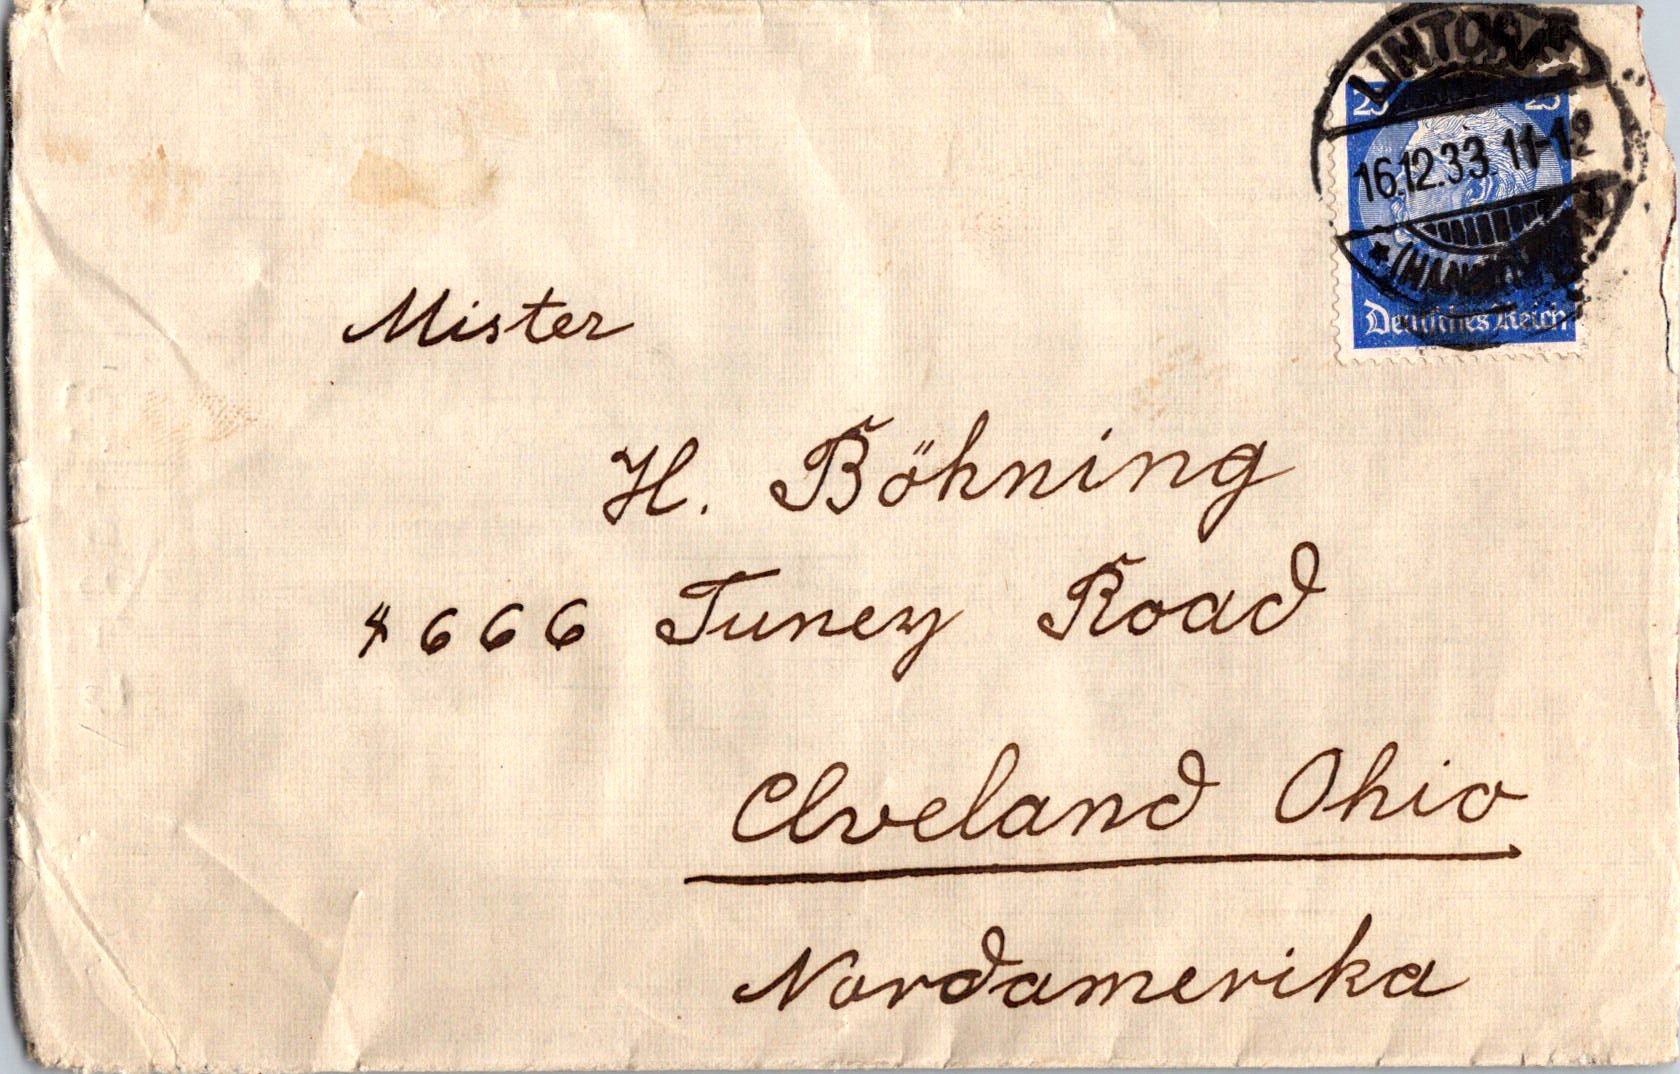 LINTORF
25 25
16.12.33. 11-12
Deutsches Reich
Mister
H. Böhning
4666 Tuney Road
Clveland Ohio
Nordamerika